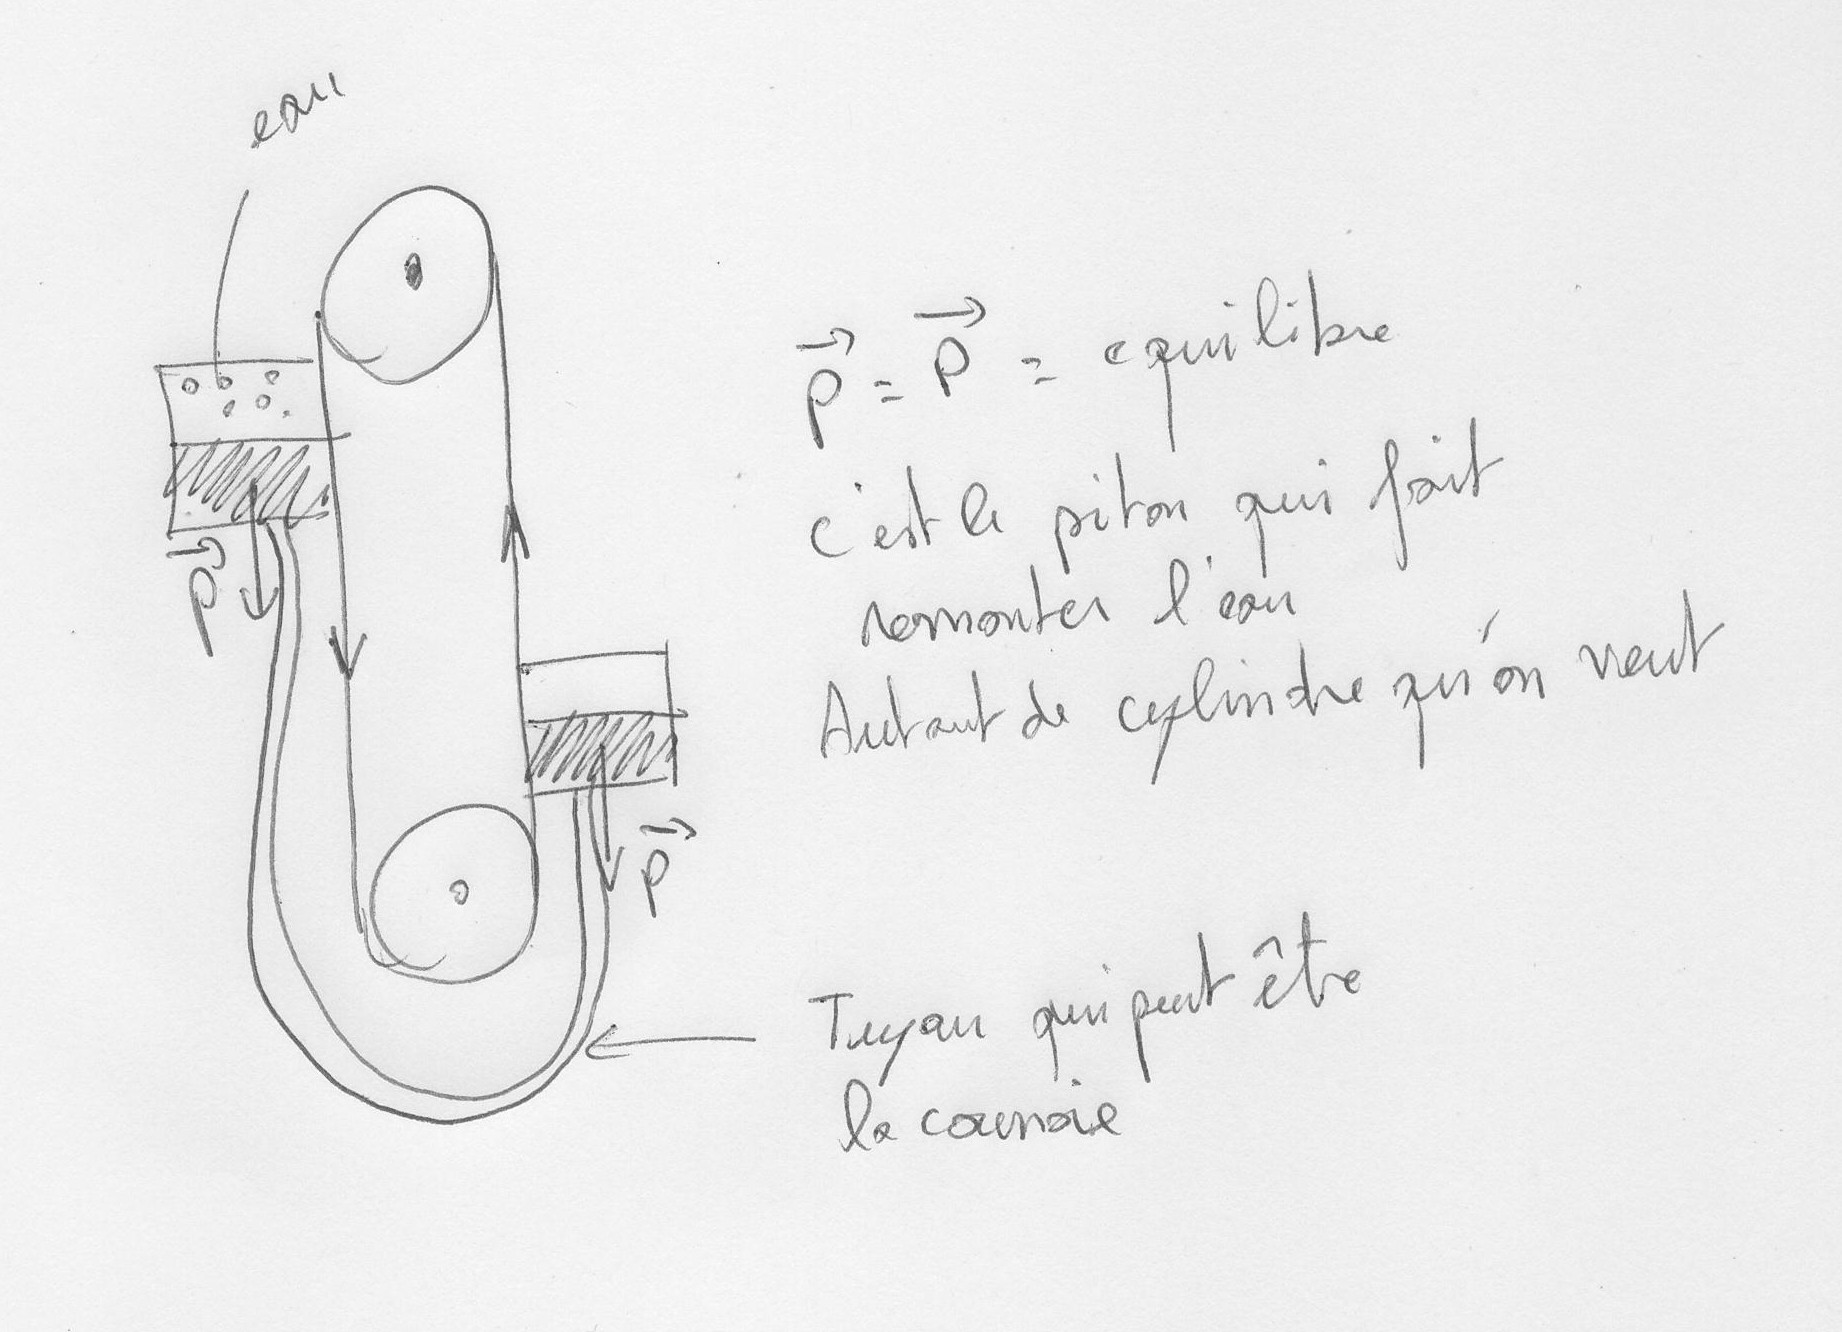 eau
P = P = equilibre
c'est le piton qui fait
remonter l'eau
Autant de cylindre qu'on veut
P
P
Tuyau qui peut être
la courroie